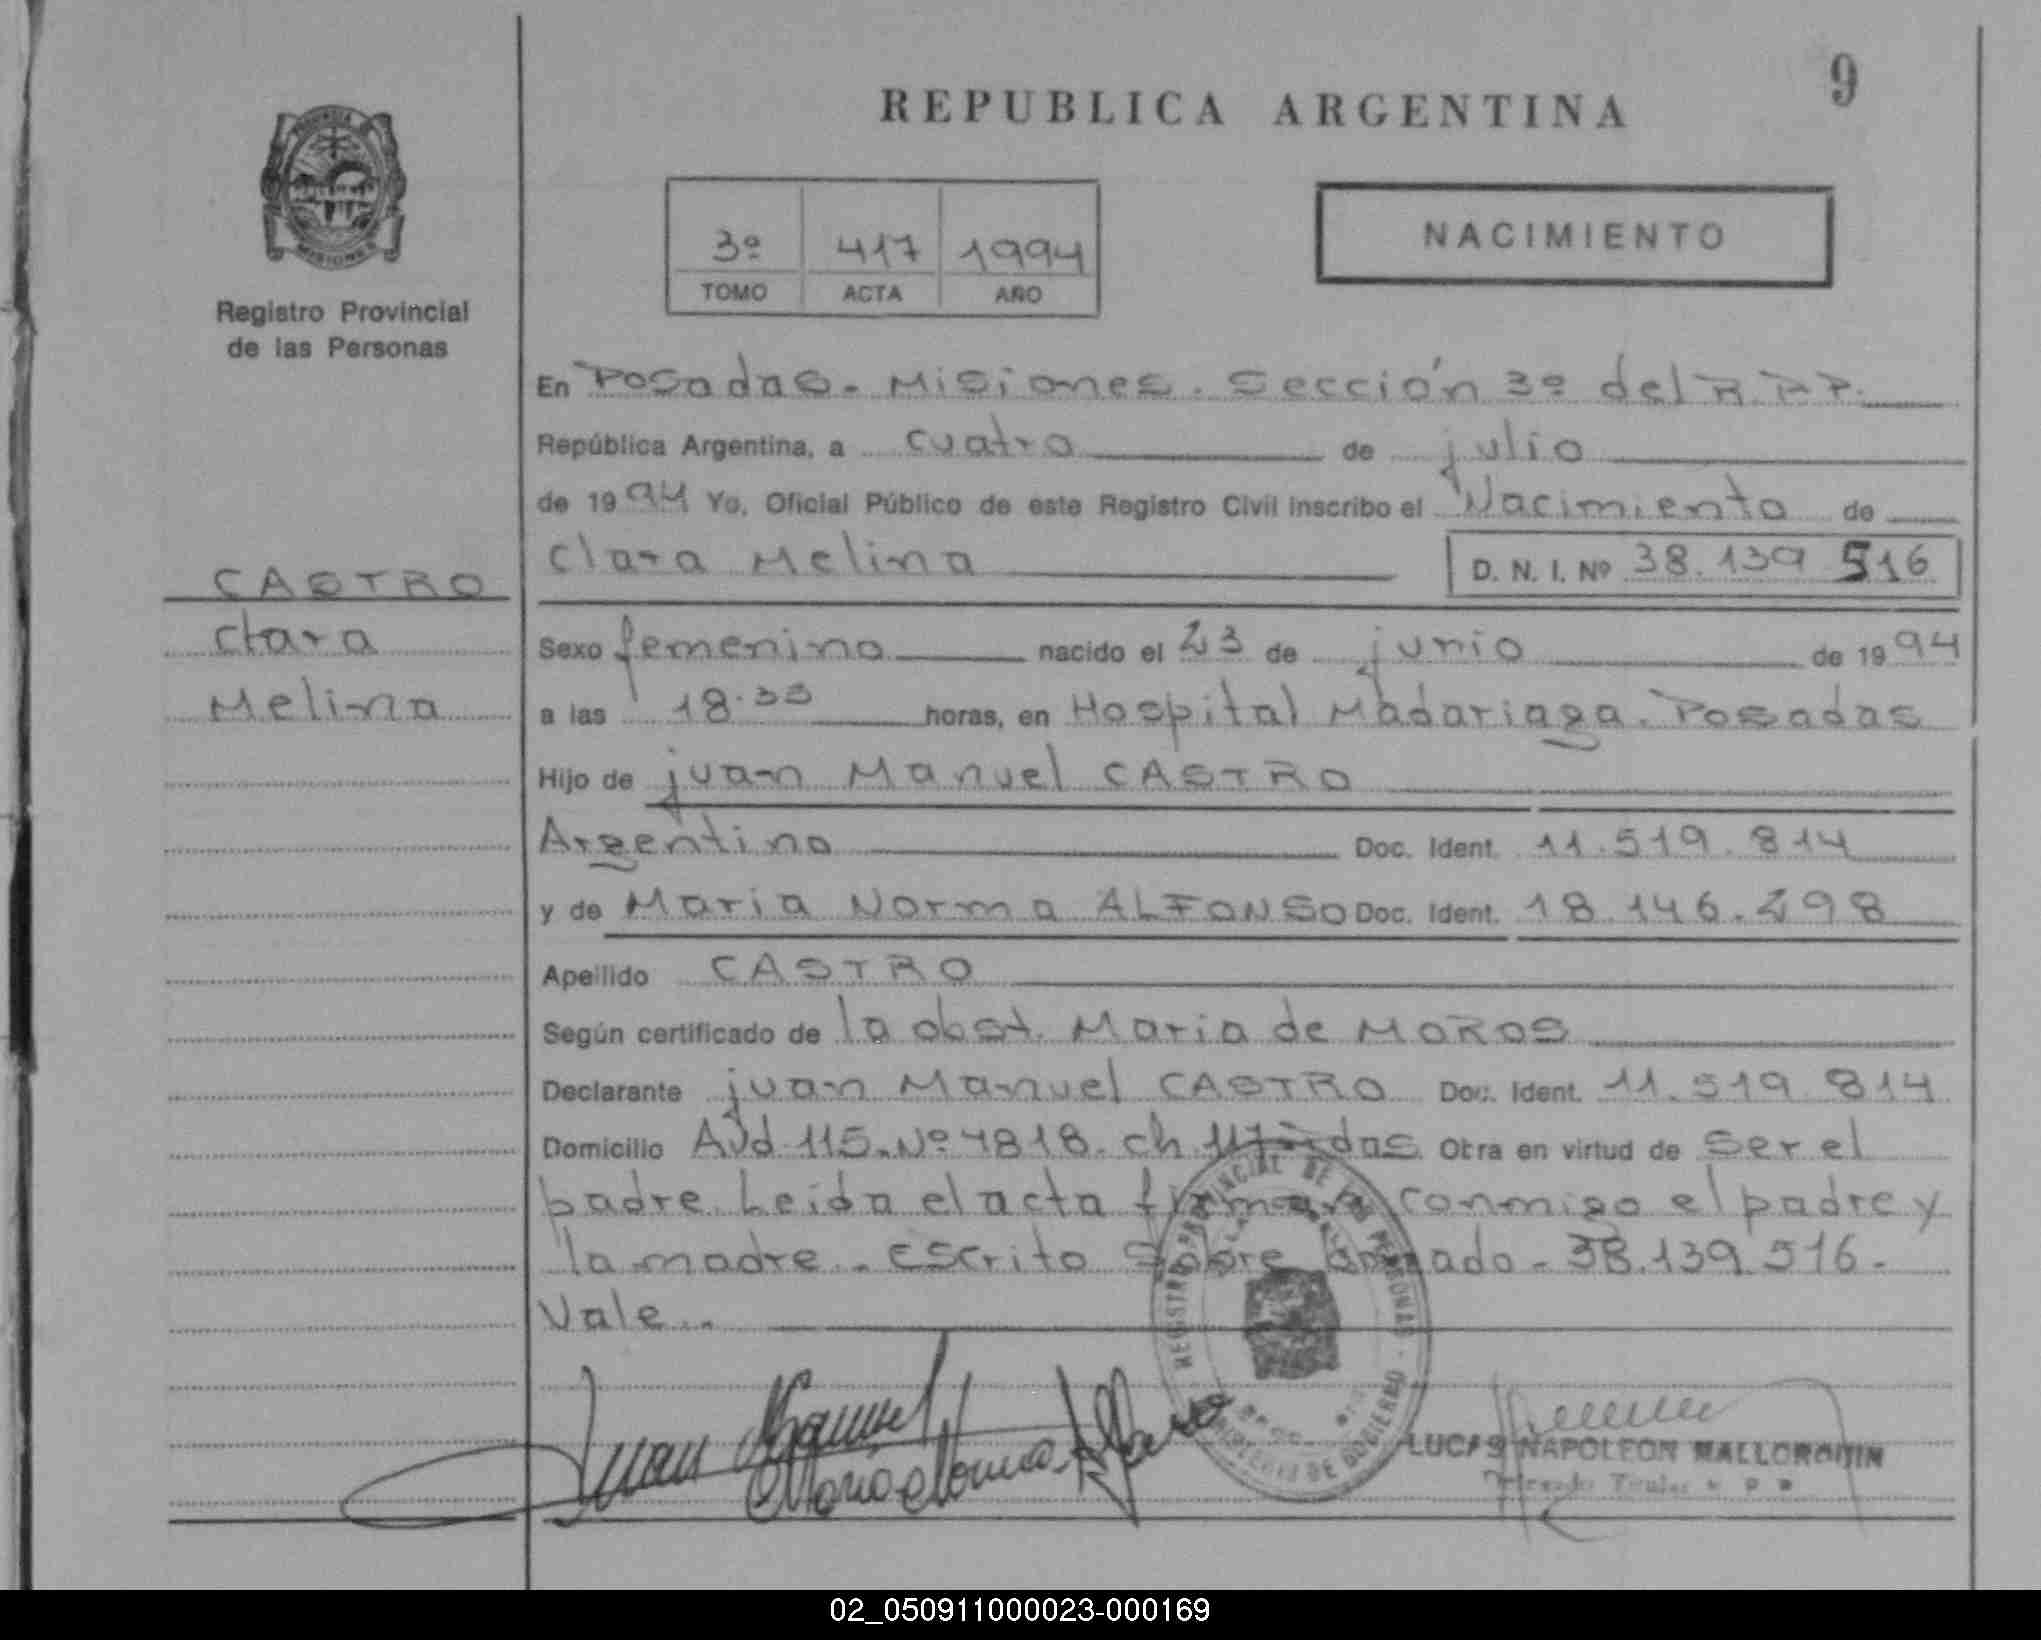 9
REPUBLICA ARGENTINA
3º 417 1994
TOMO ACTA AÑO
NACIMIENTO
Registro Provincial
de las Personas
En Posadas - Misiones. Sección 3º del R.P.P.
República Argentina, a cuatro de julio
de 1994 Yo, Oficial Público de este Registro Civil inscribo el Nacimiento de
Clara Melina D. N. I. Nº 38.139 516
CASTRO
Clara
Melina
Sexo femenino nacido el 23 de junio de 1994
a las 18.35 horas, en Hospital Madariaga. Posadas
Hijo de juan Manuel CASTRO
Argentino Doc. Ident. 11.519.814
y de Maria Norma ALFONSO Doc. Ident. 18.146.298
Apellido CASTRO
Según certificado de la obst. Maria de MOROS
Declarante juan Manuel CASTRO Doc. Ident. 11.519.814
Domicilio Avd 115. Nº 4818. ch Otra en virtud de Ser el
padre. Leida el acta firman conmigo el padre y
la madre. - Escrito sobre borrado - 38.139.516 -
Vale. -
Juan Manuel
Maria Norma Alfonso
REGISTRO PROVINCIAL DE LAS PERSONAS
MINISTERIO DE GOBIERNO
LUCAS NAPOLEON MALLORQUIN
Delegado Titular R P P
02_050911000023-000169